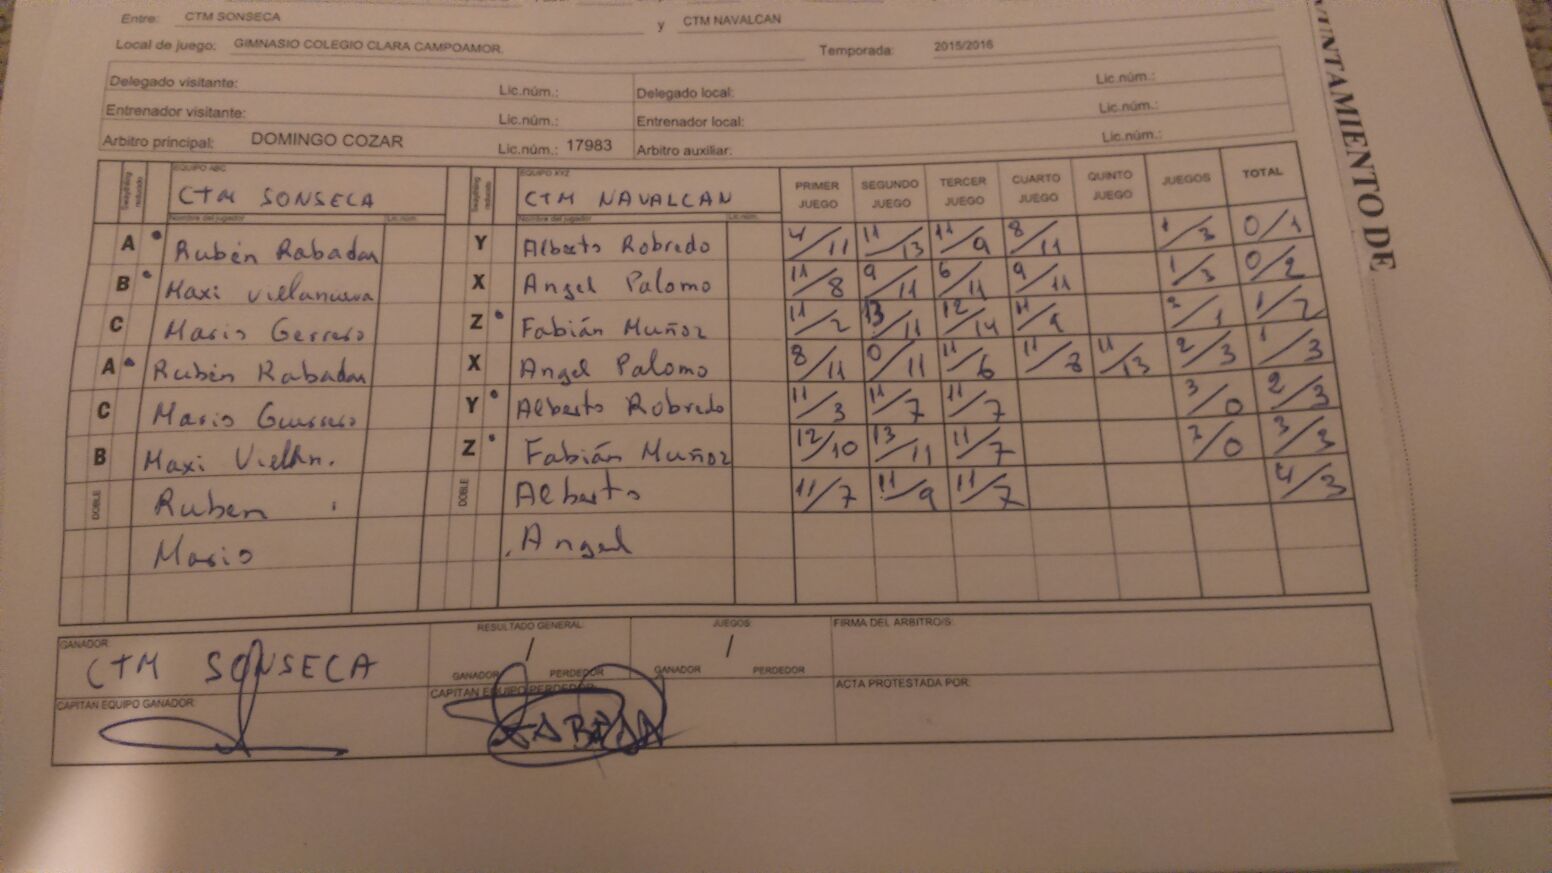 Entre: CTM SONSECA y CTM NAVALCAN
Local de juego: GIMNASIO COLEGIO CLARA CAMPOAMOR. Temporada: 2015/2016
Delegado visitante: Lic.núm.: Delegado local: Lic.núm.:
Entrenador visitante: Lic.núm.: Entrenador local: Lic.núm.:
Arbitro principal: DOMINGO COZAR Lic.núm.: 17983 Arbitro auxiliar: Lic.núm.:
EQUIPO ABC EQUIPO XYZ
CTM SONSECA CTM NAVALCAN PRIMER JUEGO SEGUNDO JUEGO TERCER JUEGO CUARTO JUEGO QUINTO JUEGO JUEGOS TOTAL
Nombre del jugador Lic.núm. Nombre del jugador Lic.núm.
A Rubén Rabadan Y Alberto Robredo 4/11 11/13 11/9 8/11 1/3 0/1
B Maxi Villanueva X Angel Palomo 11/8 9/11 6/11 9/11 1/3 0/2
C Mario Gerrero Z Fabián Muñoz 11/2 13/11 12/14 11/9 3/1 1/2
A Rubén Rabadan X Angel Palomo 8/11 0/11 11/6 11/8 11/13 2/3 1/3
C Mario Guerrero Y Alberto Robredo 11/3 11/7 11/7 3/0 2/3
B Maxi Z Fabián Muñoz 12/10 13/11 11/7 3/0 3/3
DOBLE Ruben DOBLE Alberto 11/7 11/9 11/7 4/3
Mario Angel
GANADOR: RESULTADO GENERAL: JUEGOS: FIRMA DEL ARBITRO/S:
CTM SONSECA / /
GANADOR PERDEDOR GANADOR PERDEDOR
CAPITAN EQUIPO GANADOR: CAPITAN EQUIPO PERDEDOR: ACTA PROTESTADA POR:
UNTAMIENTO DE